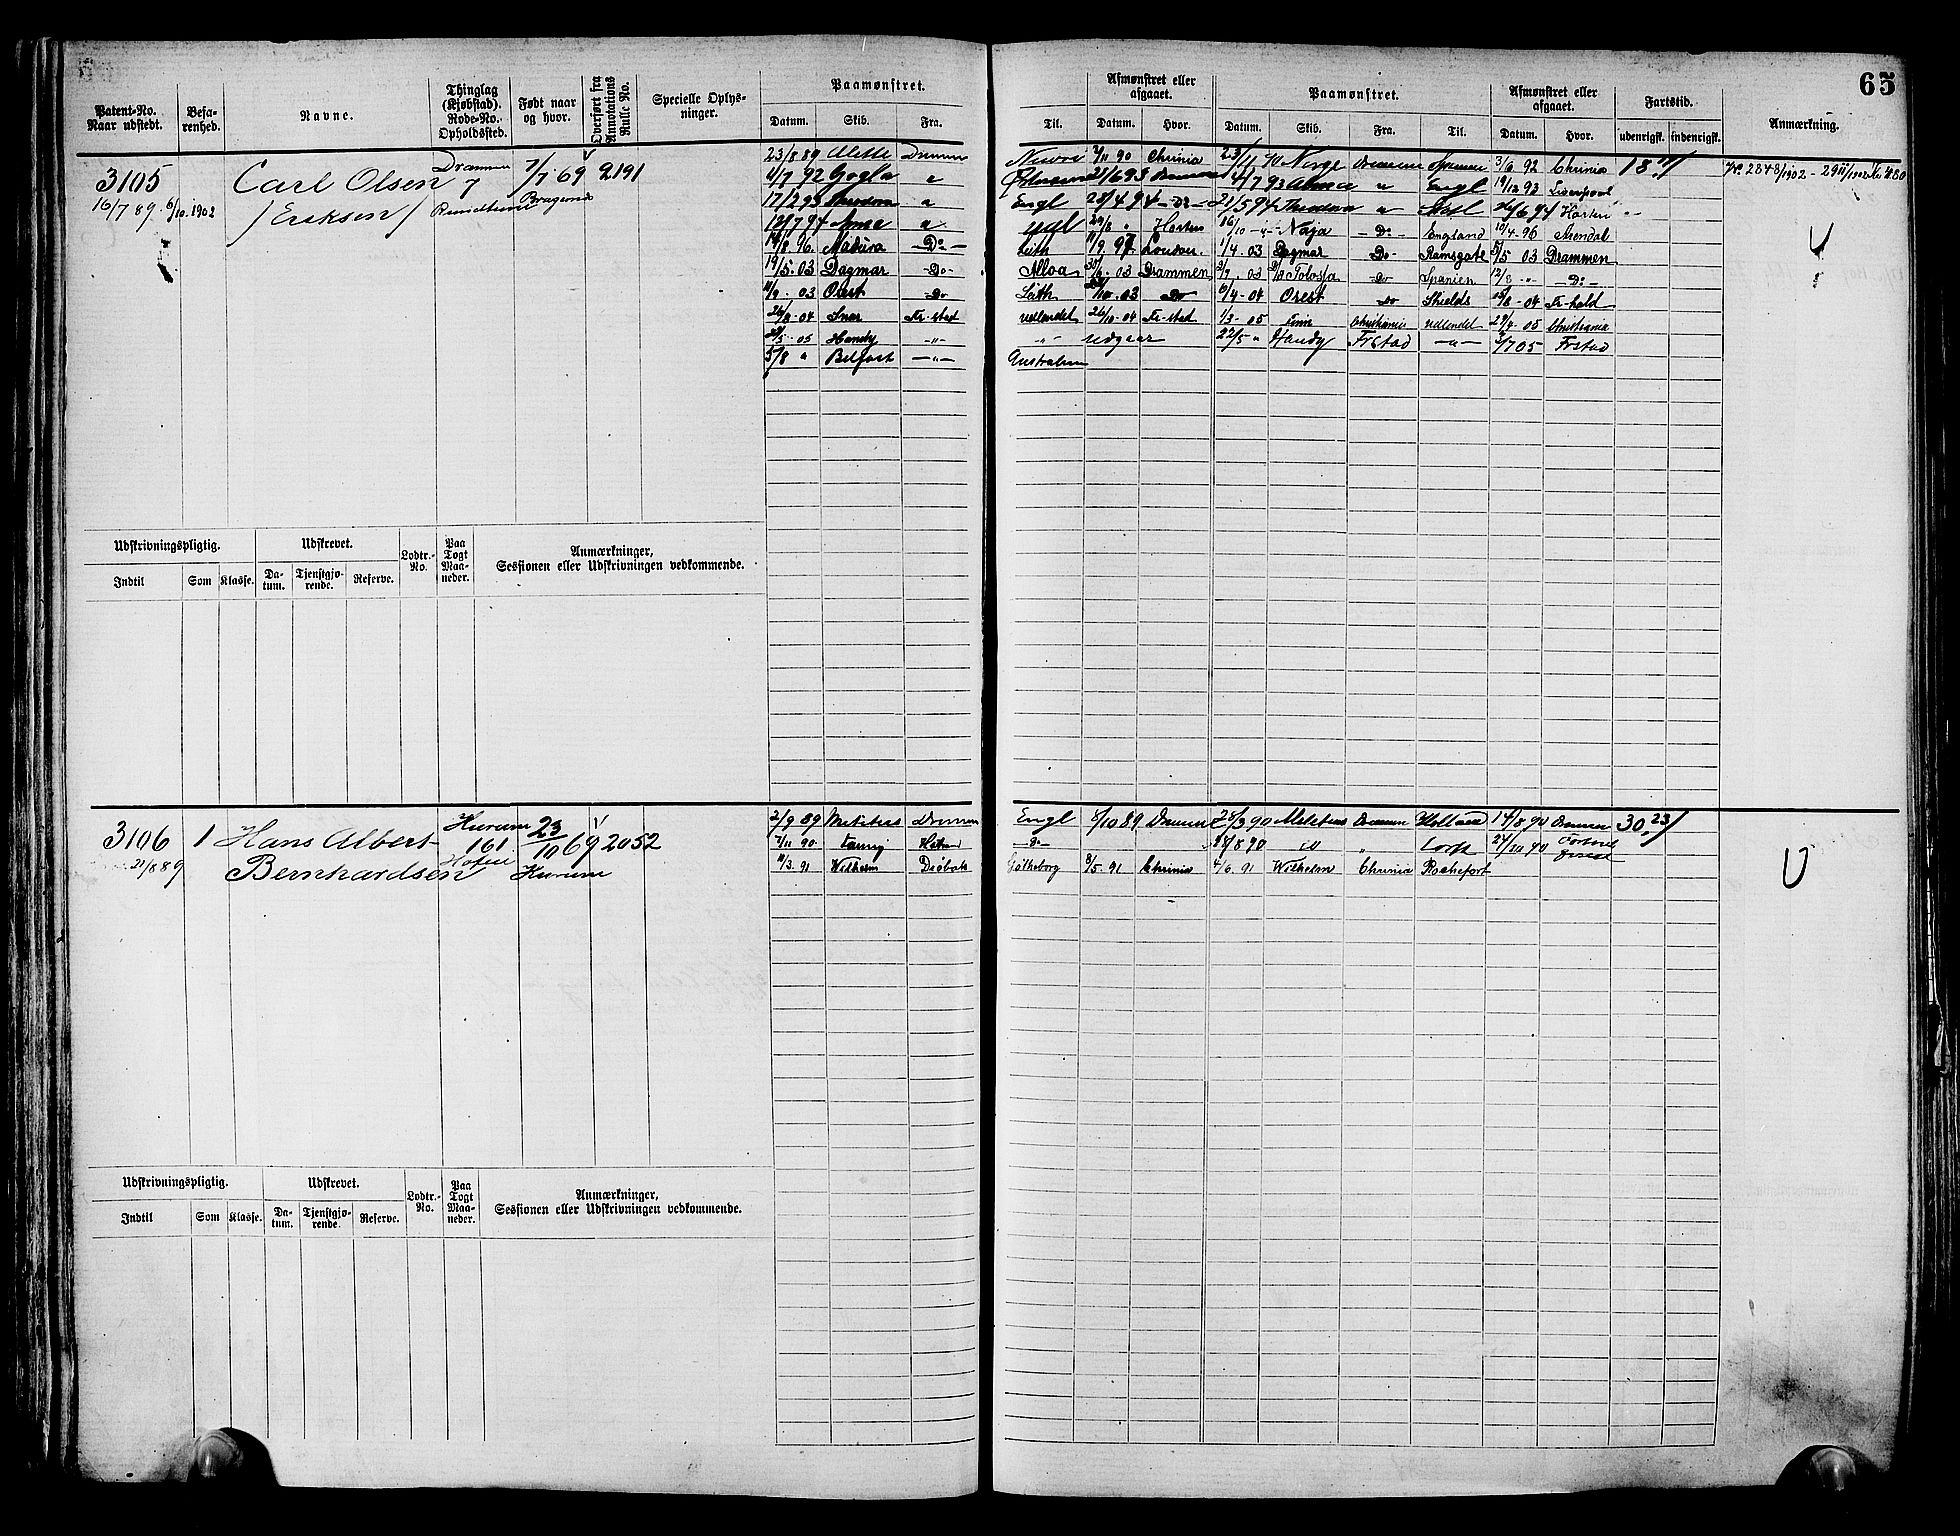 65
Patent-No. Naar udstedt.
Befarenhed.
Navne.
Thinglag (Kjøbstad). Rode-No. Opholdssted.
Født naar og hvor.
Overført fra Annotations Rulle No.
Specielle Oplysninger.
Paamønstret.
Datum. Skib. Fra.
Til.
Afmønstret eller afgaaet.
Datum. Hvor.
Paamønstret.
Datum. Skib. Fra. Til.
Afmønstret eller afgaaet.
Datum. Hvor.
Fartstid.
udenrigsk. indenrigsk.
Anmærkning.
3105 Carl Olsen Drammen 7 7/7 69 2191
16/7 89. 6/10. 1902 / Eriksen / Bragernes
23/8 89 Drammen 7/11 90 Chrinia 23/11 90 Norge Drammen 3/6 92 Chrinia 18
11/7 92 Gogla " 4/7 93 Alma " Engl 19/12 93 Liverpool
17/2 93 " Engl 28/4 94 - Do - 21/5 94 " 26/6 94 Horten
12/7 94 Anna " 29/8 " Horten 16/10 - " - Naja - Do - England 10/4-96 Arendal
14/8 96 - Do - Leith 11/9 97 London. 1/4 03 Dagmar Do - Ramsgate 5/5 03 Drammen
19/5. 03 Dagmar - Do - Alloa 30/6. 03 Drammen 3/7. 03 Tolosta - Do Spanien 12/8 - " - - Do -
11/9. 03 Orest - Do Leith /10. 03 Do 6/4-04 Orest - Do Shields /8-04 Fr.hald
26/8-04 Snar Fr-stad udlandet 26/10-04 Fr-stad 1/3-05 Finn Christiania udlandet 29/4-05 Christiania
/5-05 Handy - " - - " - udgaar 22/5 " Handy Frstad - " - 3/7 05 Frstad
5/8 " Belfast - " - Australien
Udskrivningspligtig.
Indtil Som Klasse.
Udskrevet.
Datum. Tjenstgjørende. Reserve.
Lodtr.-No.
Paa Togt Maaneder.
Anmærkninger, Sessionen eller Udskrivningen vedkommende.
3106 1 Hans Albert Hurum 161 23/10 69 2052
21/8 89 Bernhardsen Hurum
2/9 89 Drammen Engl 1/10 89 Drammen 25/3 90 Drammen Holland 14/8 90 Drammen 30,23
7/11 90 - Do - 18/8 90 " 24/10 90
10/3. 91 Wilhelm Drøbak Gøtheborg 8/5. 91 Chrinia 4/6. 91 Wilhelm Chrinia Rochefort
U
Udskrivningspligtig.
Indtil Som Klasse.
Udskrevet.
Datum. Tjenstgjørende. Reserve.
Lodtr.-No.
Paa Togt Maaneder.
Anmærkninger, Sessionen eller Udskrivningen vedkommende.